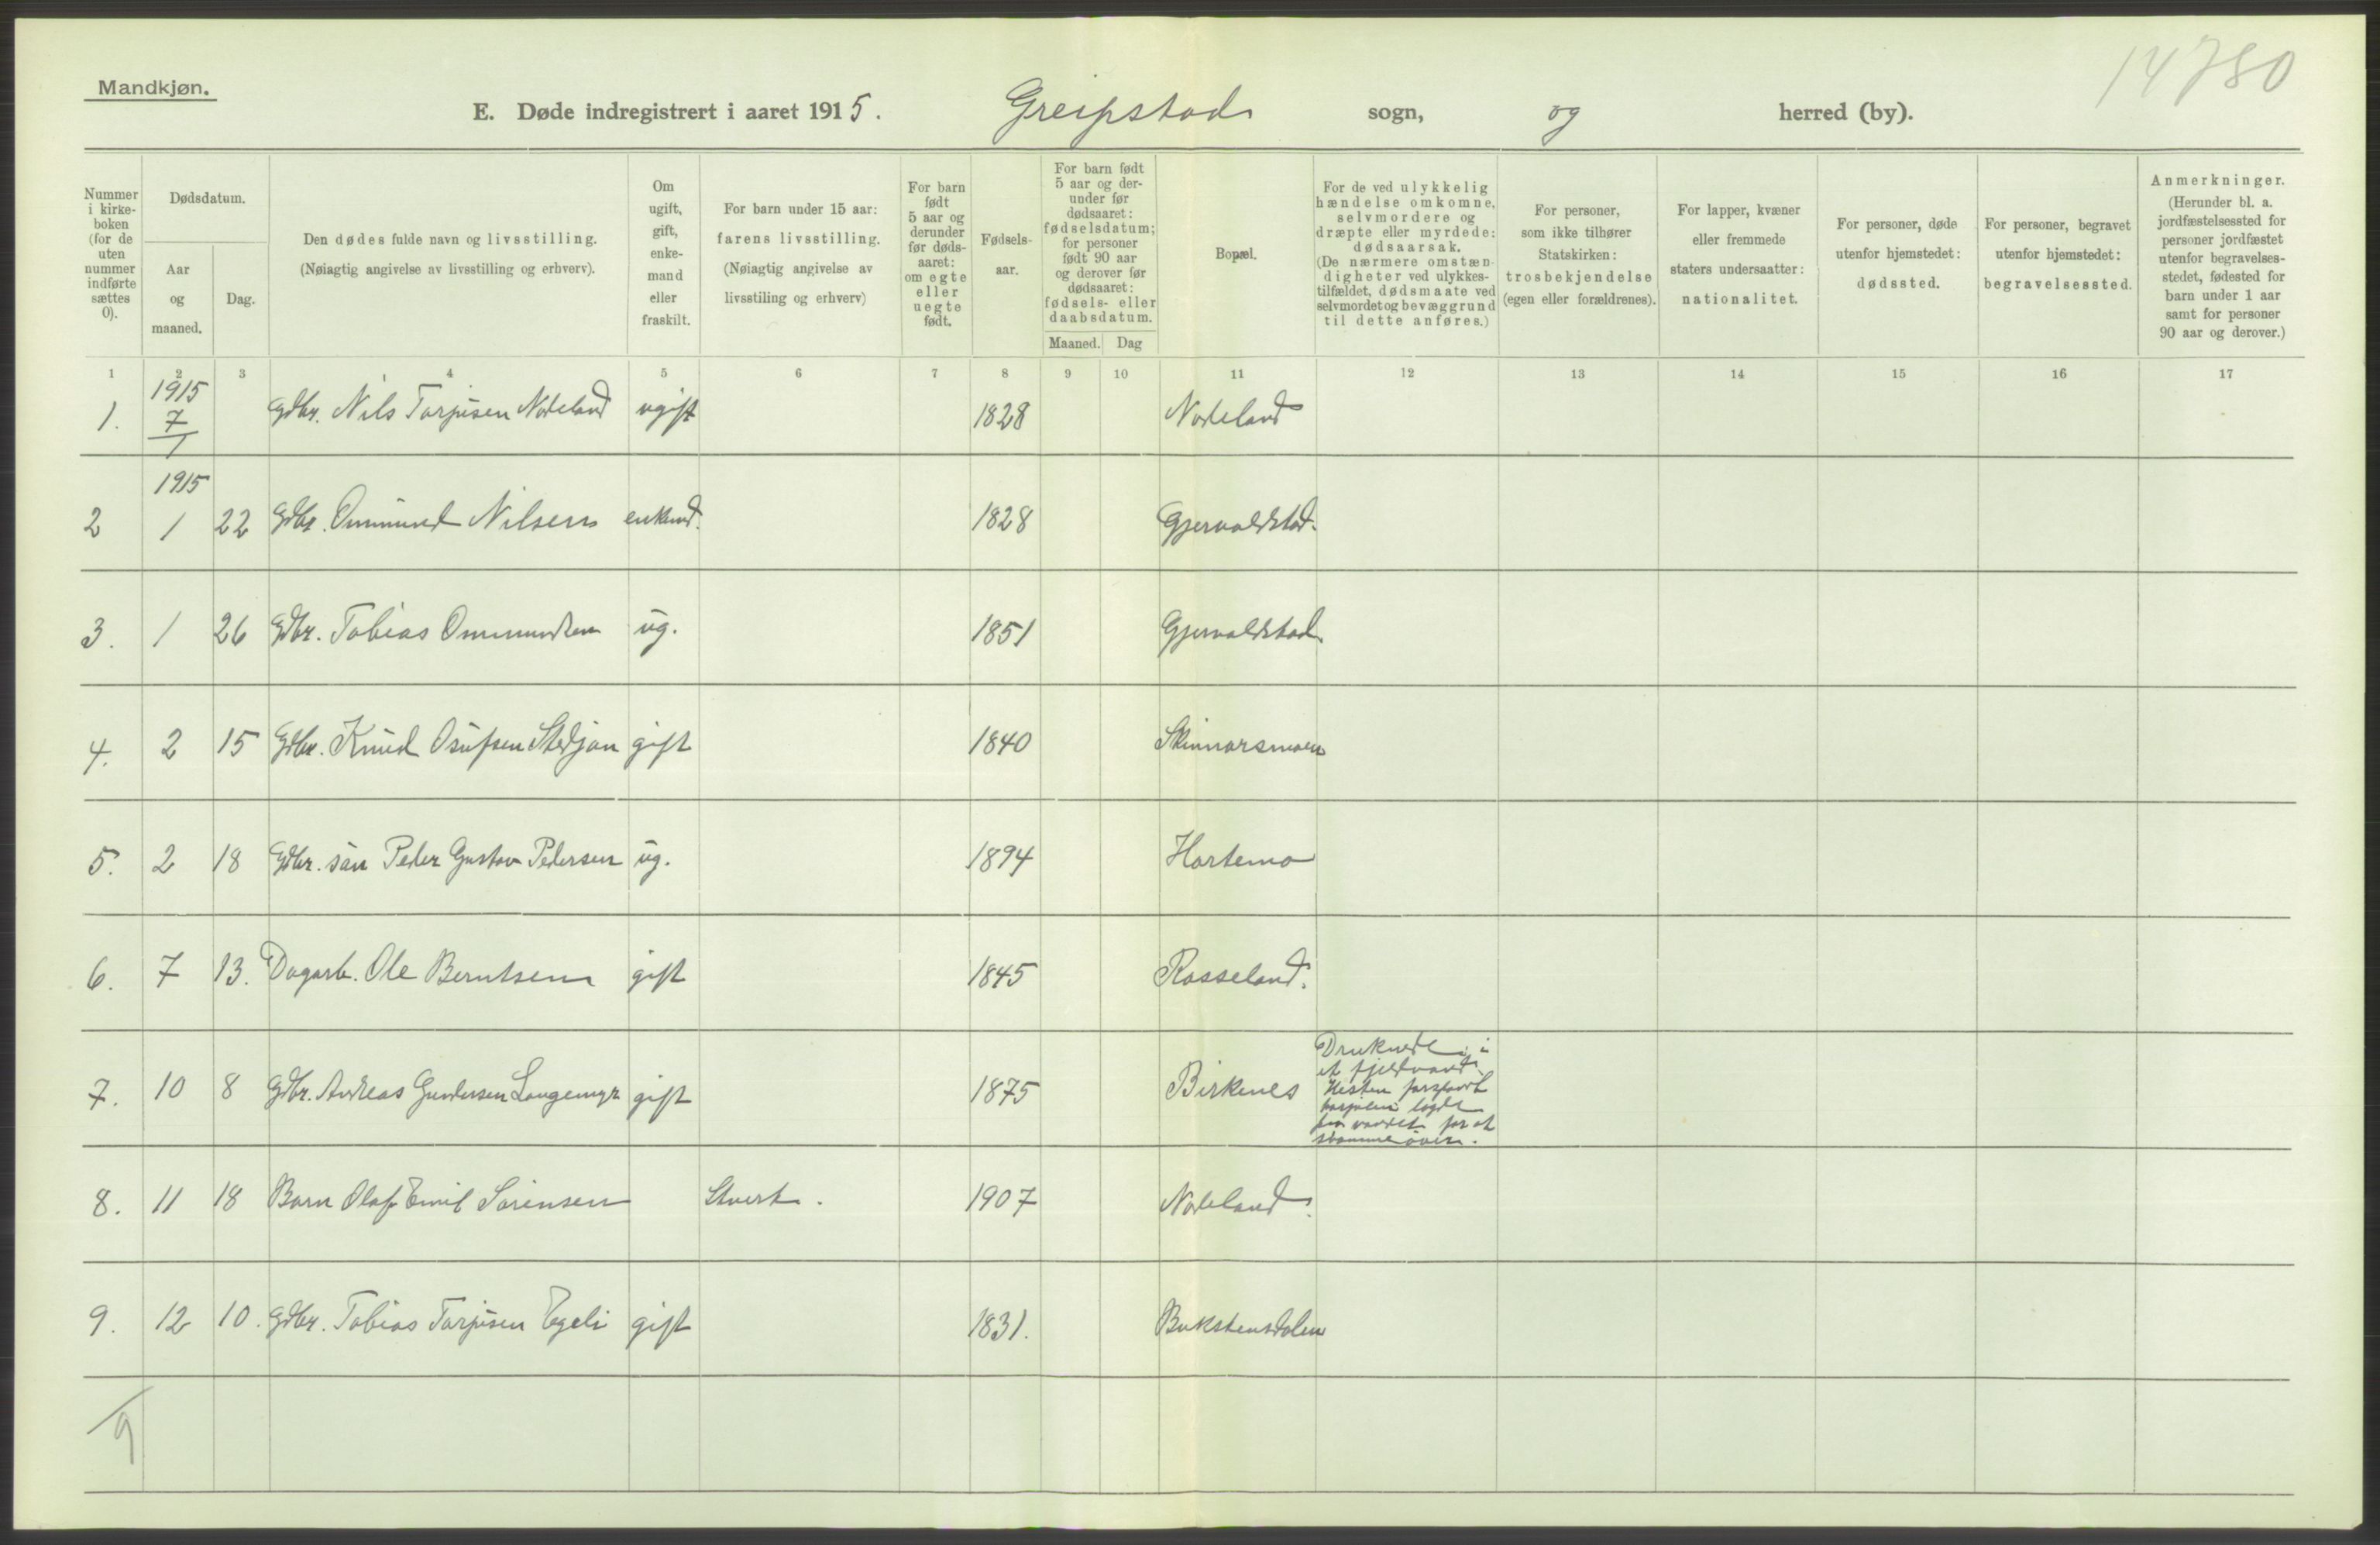 14780
Mandkjøn.
E. Døde indregistrert i aaret 1915. Greipstad sogn, og herred (by).
Nummer i kirke- boken (for de uten nummer indførte sættes 0).
Dødsdatum.
Aar og maaned.
Dag.
Den dødes fulde navn og livsstilling.
(Nøiagtig angivelse av livsstilling og erhverv).
Om ugift, gift, enke- mand eller fraskilt.
For barn under 15 aar: farens livsstilling.
(Nøiagtig angivelse av livsstiling og erhverv)
For barn født 5 aar og derunder før døds- aaret: om egte eller uegte født.
Fødsels- aar.
For barn født 5 aar og der- under før dødsaaret: fødselsdatum; for personer født 90 aar og derover før dødsaaret: fødsels- eller daabsdatum.
Maaned. Dag
Bopæl.
For de ved ulykkelig hændelse omkomne, selvmordere og dræpte eller myrdede: dødsaarsak.
(De nærmere omstæn- digheter ved ulykkes- tilfældet, dødsmaate ved selvmordet og bevæggrund til dette anføres.)
For personer, som ikke tilhører Statskirken: trosbekjendelse (egen eller forældrenes).
For lapper, kvæner eller fremmede staters undersaatter: nationalitet.
For personer, døde utenfor hjemstedet: dødssted.
For personer, begravet utenfor hjemstedet: begravelsessted.
Anmerkninger.
(Herunder bl. a. jordfæstelsessted for personer jordfæstet utenfor begravelses- stedet, fødested for barn under 1 aar samt for personer 90 aar og derover.)
1 2 3 4 5 6 7 8 9 10 11 12 13 14 15 16 17
1. 1915 7/1 Gdbr. Nils Torjusen Nodeland ugift 1828 Nodeland
2 1915 1 22 Gdbr. Ommund Nilsen enkemd. 1828 Gjervoldstad.
3. 1 26 Gdbr. Tobias Ommundsen ug. 1851 Gjervoldstad.
4. 2 15 Gdbr. Knud Osufsen Stedjan gift 1840 Skinnarsmoen
5. 2 18 Gdbr. søn Peder Gustav Pedersen ug. 1894 Hortemo
6. 7 13. Dagarb. Ole Berntsen gift 1845 Rosseland.
7. 10 8 Gdbr. Andreas Gundersen Langemyr gift 1875 Birkenes Druknede i et fjeldvand. Hesten lagde paa vandet for at svømme over.
8. 11 18 Barn Olaf Emil Sørensen 1907 Nodeland.
9. 12 10. Gdbr. Tobias Torjusen Egeli gift 1831. Bukstensdalen
9